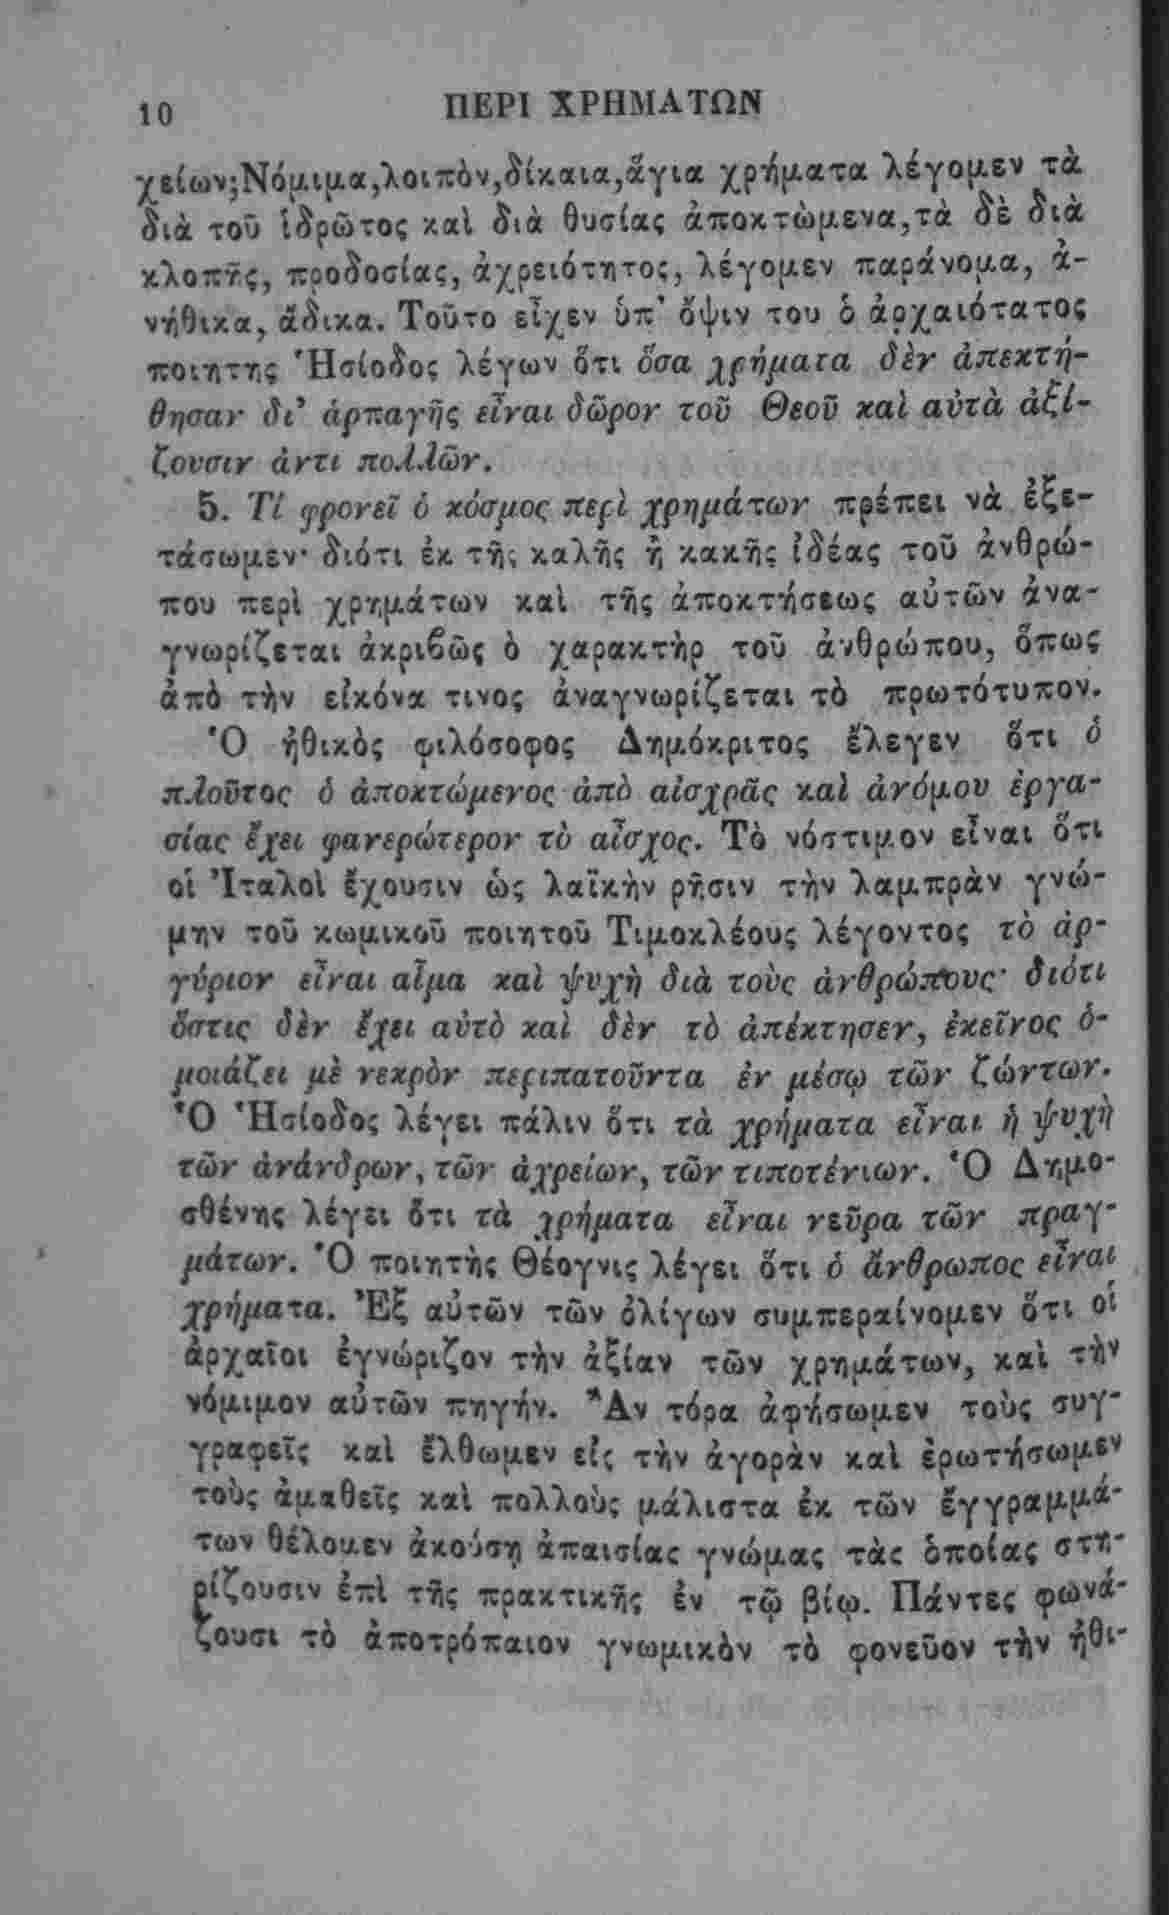 10 ΠΕΡΙ ΧΡΗΜΑΤΩΝ
χείων;Νόμιμα,λοιπὸν,δίκαια,ἅγια χρήματα λέγομεν τὰ
διὰ τοῦ ἱδρῶτος καὶ διὰ θυσίας ἀποκτώμενα,τὰ δὲ διὰ
κλοπῆς, προδοσίας, ἀχρειότητος, λέγομεν παράνομα, ἀ-
νήθικα, ἄδικα. Τοῦτο εἶχεν ὑπ' ὄψιν του ὁ ἀρχαιότατος
ποιητὴς Ἡσίοδος λέγων ὅτι ὅσα χρήματα δὲν ἀπεκτή-
θησαν δι' ἁρπαγῆς εἶναι δῶρον τοῦ Θεοῦ καὶ αὐτὰ ἀξί-
ζουσιν ἀντι πολλῶν.
5. Τί φρονεῖ ὁ κόσμος περὶ χρημάτων πρέπει νὰ ἐξε-
τάσωμεν· διότι ἐκ τῆς καλῆς ἢ κακῆς ἰδέας τοῦ ἀνθρώ-
που περὶ χρημάτων καὶ τῆς ἀποκτήσεως αὐτῶν ἀνα-
γνωρίζεται ἀκριβῶς ὁ χαρακτὴρ τοῦ ἀνθρώπου, ὅπως
ἀπὸ τὴν εἰκόνα τινος ἀναγνωρίζεται τὸ πρωτότυπον.
Ὁ ἠθικὸς φιλόσοφος Δημόκριτος ἔλεγεν ὅτι ὁ
πλοῦτος ὁ ἀποκτώμενος ἀπὸ αἰσχρᾶς καὶ ἀνόμου ἐργα-
σίας ἔχει φανερώτερον τὸ αἶσχος. Τὸ νόστιμον εἶναι ὅτι
οἱ Ἰταλοὶ ἔχουσιν ὡς λαϊκὴν ρῆσιν τὴν λαμπρὰν γνώ-
μην τοῦ κωμικοῦ ποιητοῦ Τιμοκλέους λέγοντος τὸ ἀρ-
γύριον εἶναι αἷμα καὶ ψυχὴ διὰ τοὺς ἀνθρώπους· διότι
ὅστις δὲν ἔχει αὐτὸ καὶ δὲν τὸ ἀπέκτησεν, ἐκεῖνος ὁ-
μοιάζει μὲ νεκρὸν περιπατοῦντα ἐν μέσῳ τῶν ζώντων.
Ὁ Ἡσίοδος λέγει πάλιν ὅτι τὰ χρήματα εἶναι ἡ ψυχὴ
τῶν ἀνάνδρων, τῶν ἀχρείων, τῶν τιποτένιων. Ὁ Δημο-
σθένης λέγει ὅτι τὰ χρήματα εἶναι νεῦρα τῶν πραγ-
μάτων. Ὁ ποιητὴς Θέογνις λέγει ὅτι ὁ ἄνθρωπος εἶναι
χρήματα. Ἐξ αὐτῶν τῶν ὀλίγων συμπεραίνομεν ὅτι οἱ
ἀρχαῖοι ἐγνώριζον τὴν ἀξίαν τῶν χρημάτων, καὶ τὴν
νόμιμον αὐτῶν πηγήν. Ἂν τόρα ἀφήσωμεν τοὺς συγ-
γραφεῖς καὶ ἔλθωμεν εἰς τὴν ἀγορὰν καὶ ἐρωτήσωμεν
τοὺς ἀμαθεῖς καὶ πολλοὺς μάλιστα ἐκ τῶν ἐγγραμμά-
των θέλομεν ἀκούσῃ ἀπαισίας γνώμας τὰς ὁποίας στη-
ρίζουσιν ἐπὶ τῆς πρακτικῆς ἐν τῷ βίῳ. Πάντες φωνά-
ζουσι τὸ ἀποτρόπαιον γνωμικὸν τὸ φονεῦον τὴν ἠθι-